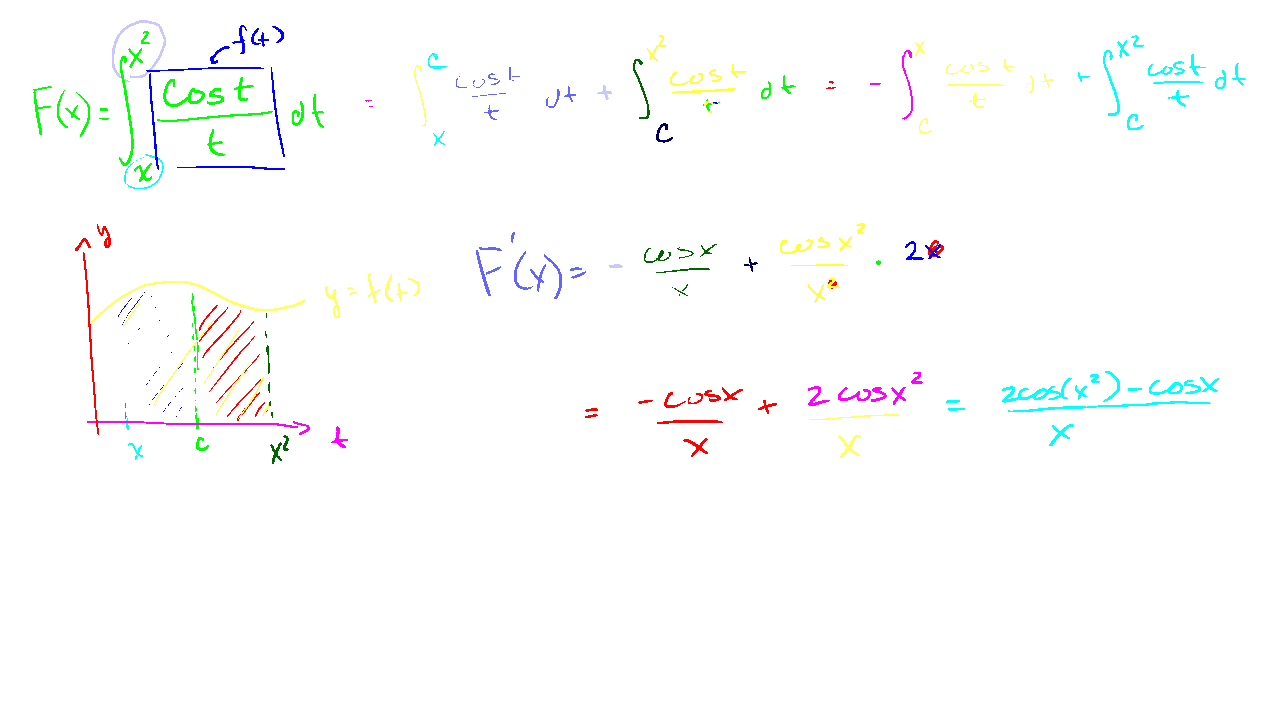 f(t)
F(x) = ∫_x^{x²} cost/t dt = ∫_x^c cost/t dt + ∫_c^{x²} cost/t dt = - ∫_c^x cost/t dt + ∫_c^{x²} cost/t dt
y
y = f(t)
x c x² t
F'(x) = - cosx/x + cosx²/x² · 2x
= -cosx/x + 2cosx²/x = 2cos(x²) - cosx/x